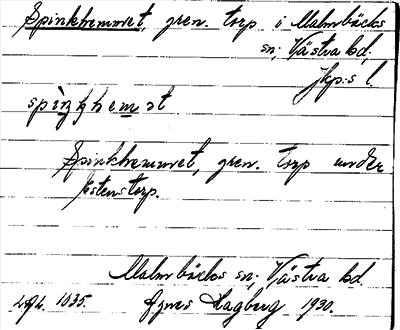 Spinkhemmet, gren. torp i Malmbäcks
sn; Västra hd,
Jkp:s l.
Spinkhemmet, gren. torp under
Malmbäcks sn; Västra hd.
1035. Agnes Lagberg 1930.